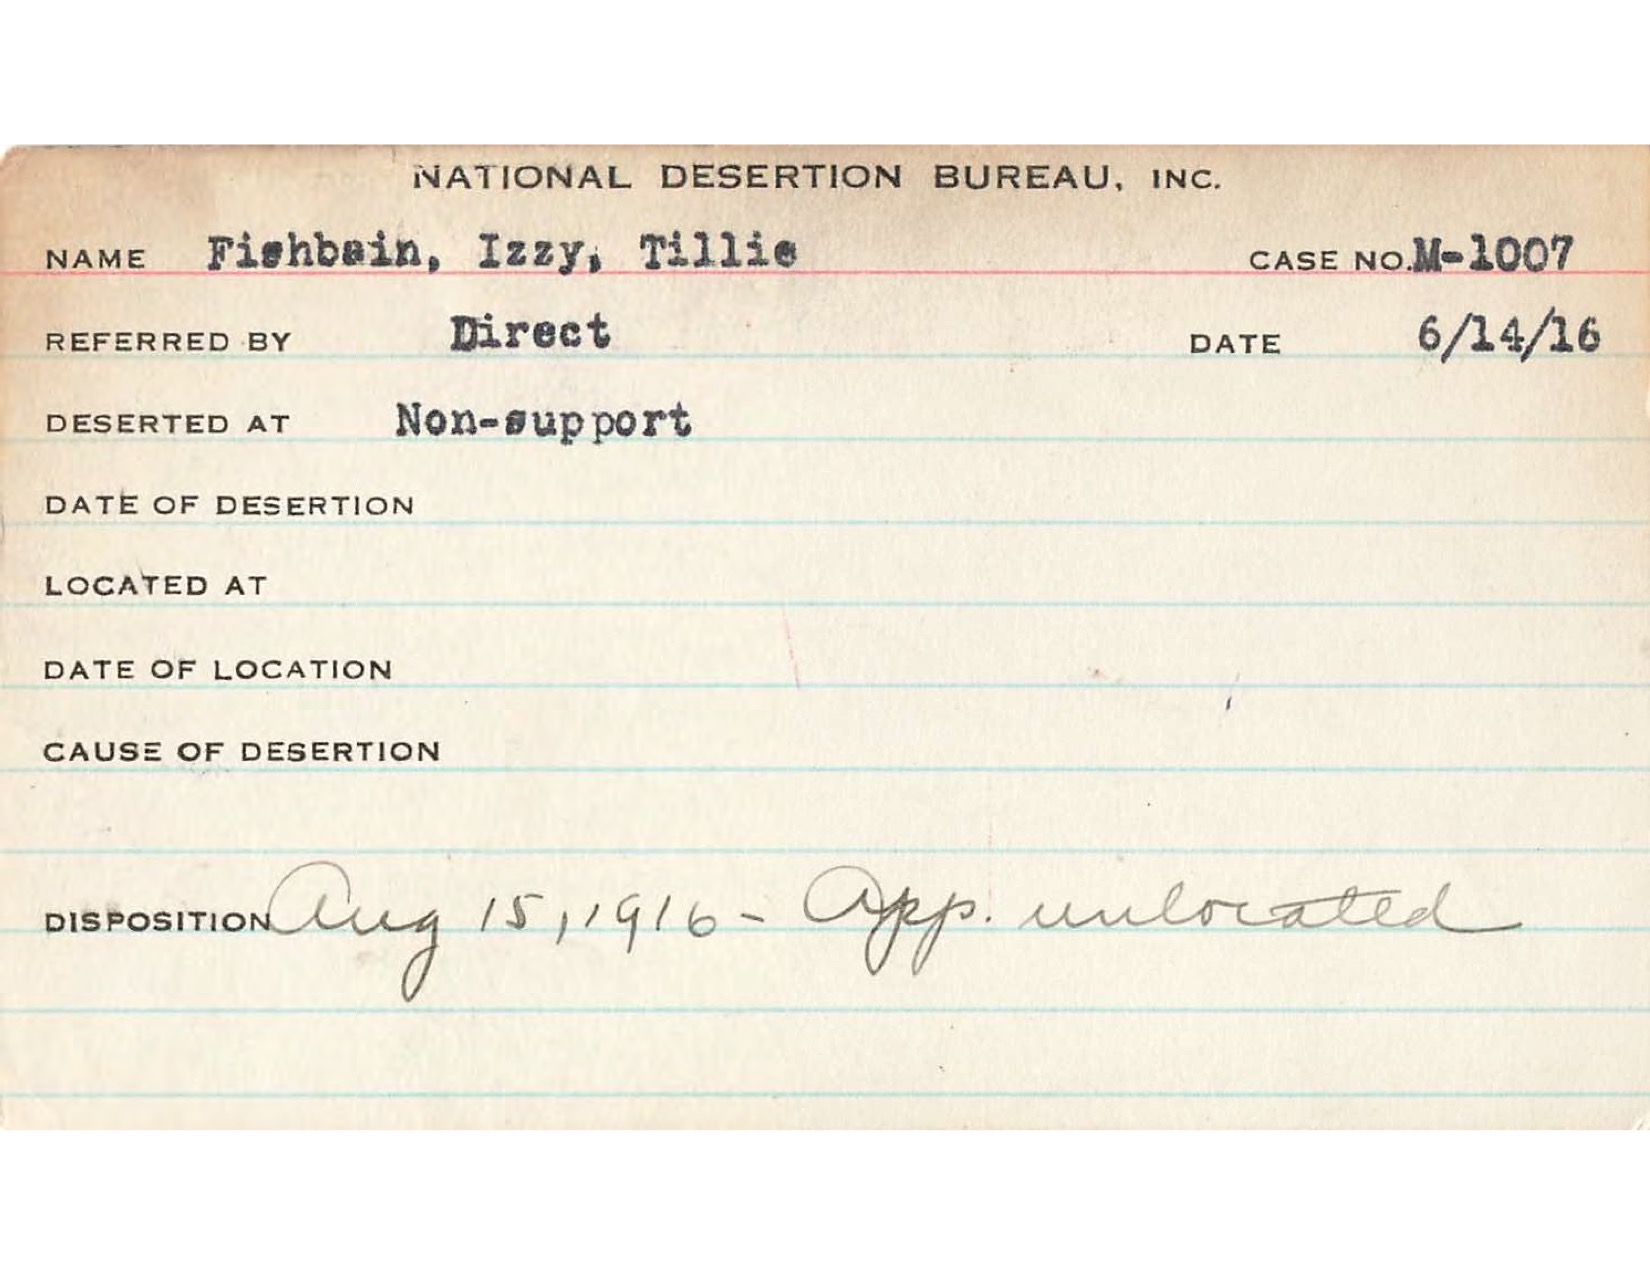 NATIONAL DESERTION BUREAU, INC.
NAME Fishbain, Izzy, Tillie CASE NO. M-1007
REFERRED BY Direct DATE 6/14/16
DESERTED AT Non-support
DATE OF DESERTION
LOCATED AT
DATE OF LOCATION
CAUSE OF DESERTION
DISPOSITION Aug 15, 1916 - App. unlocated